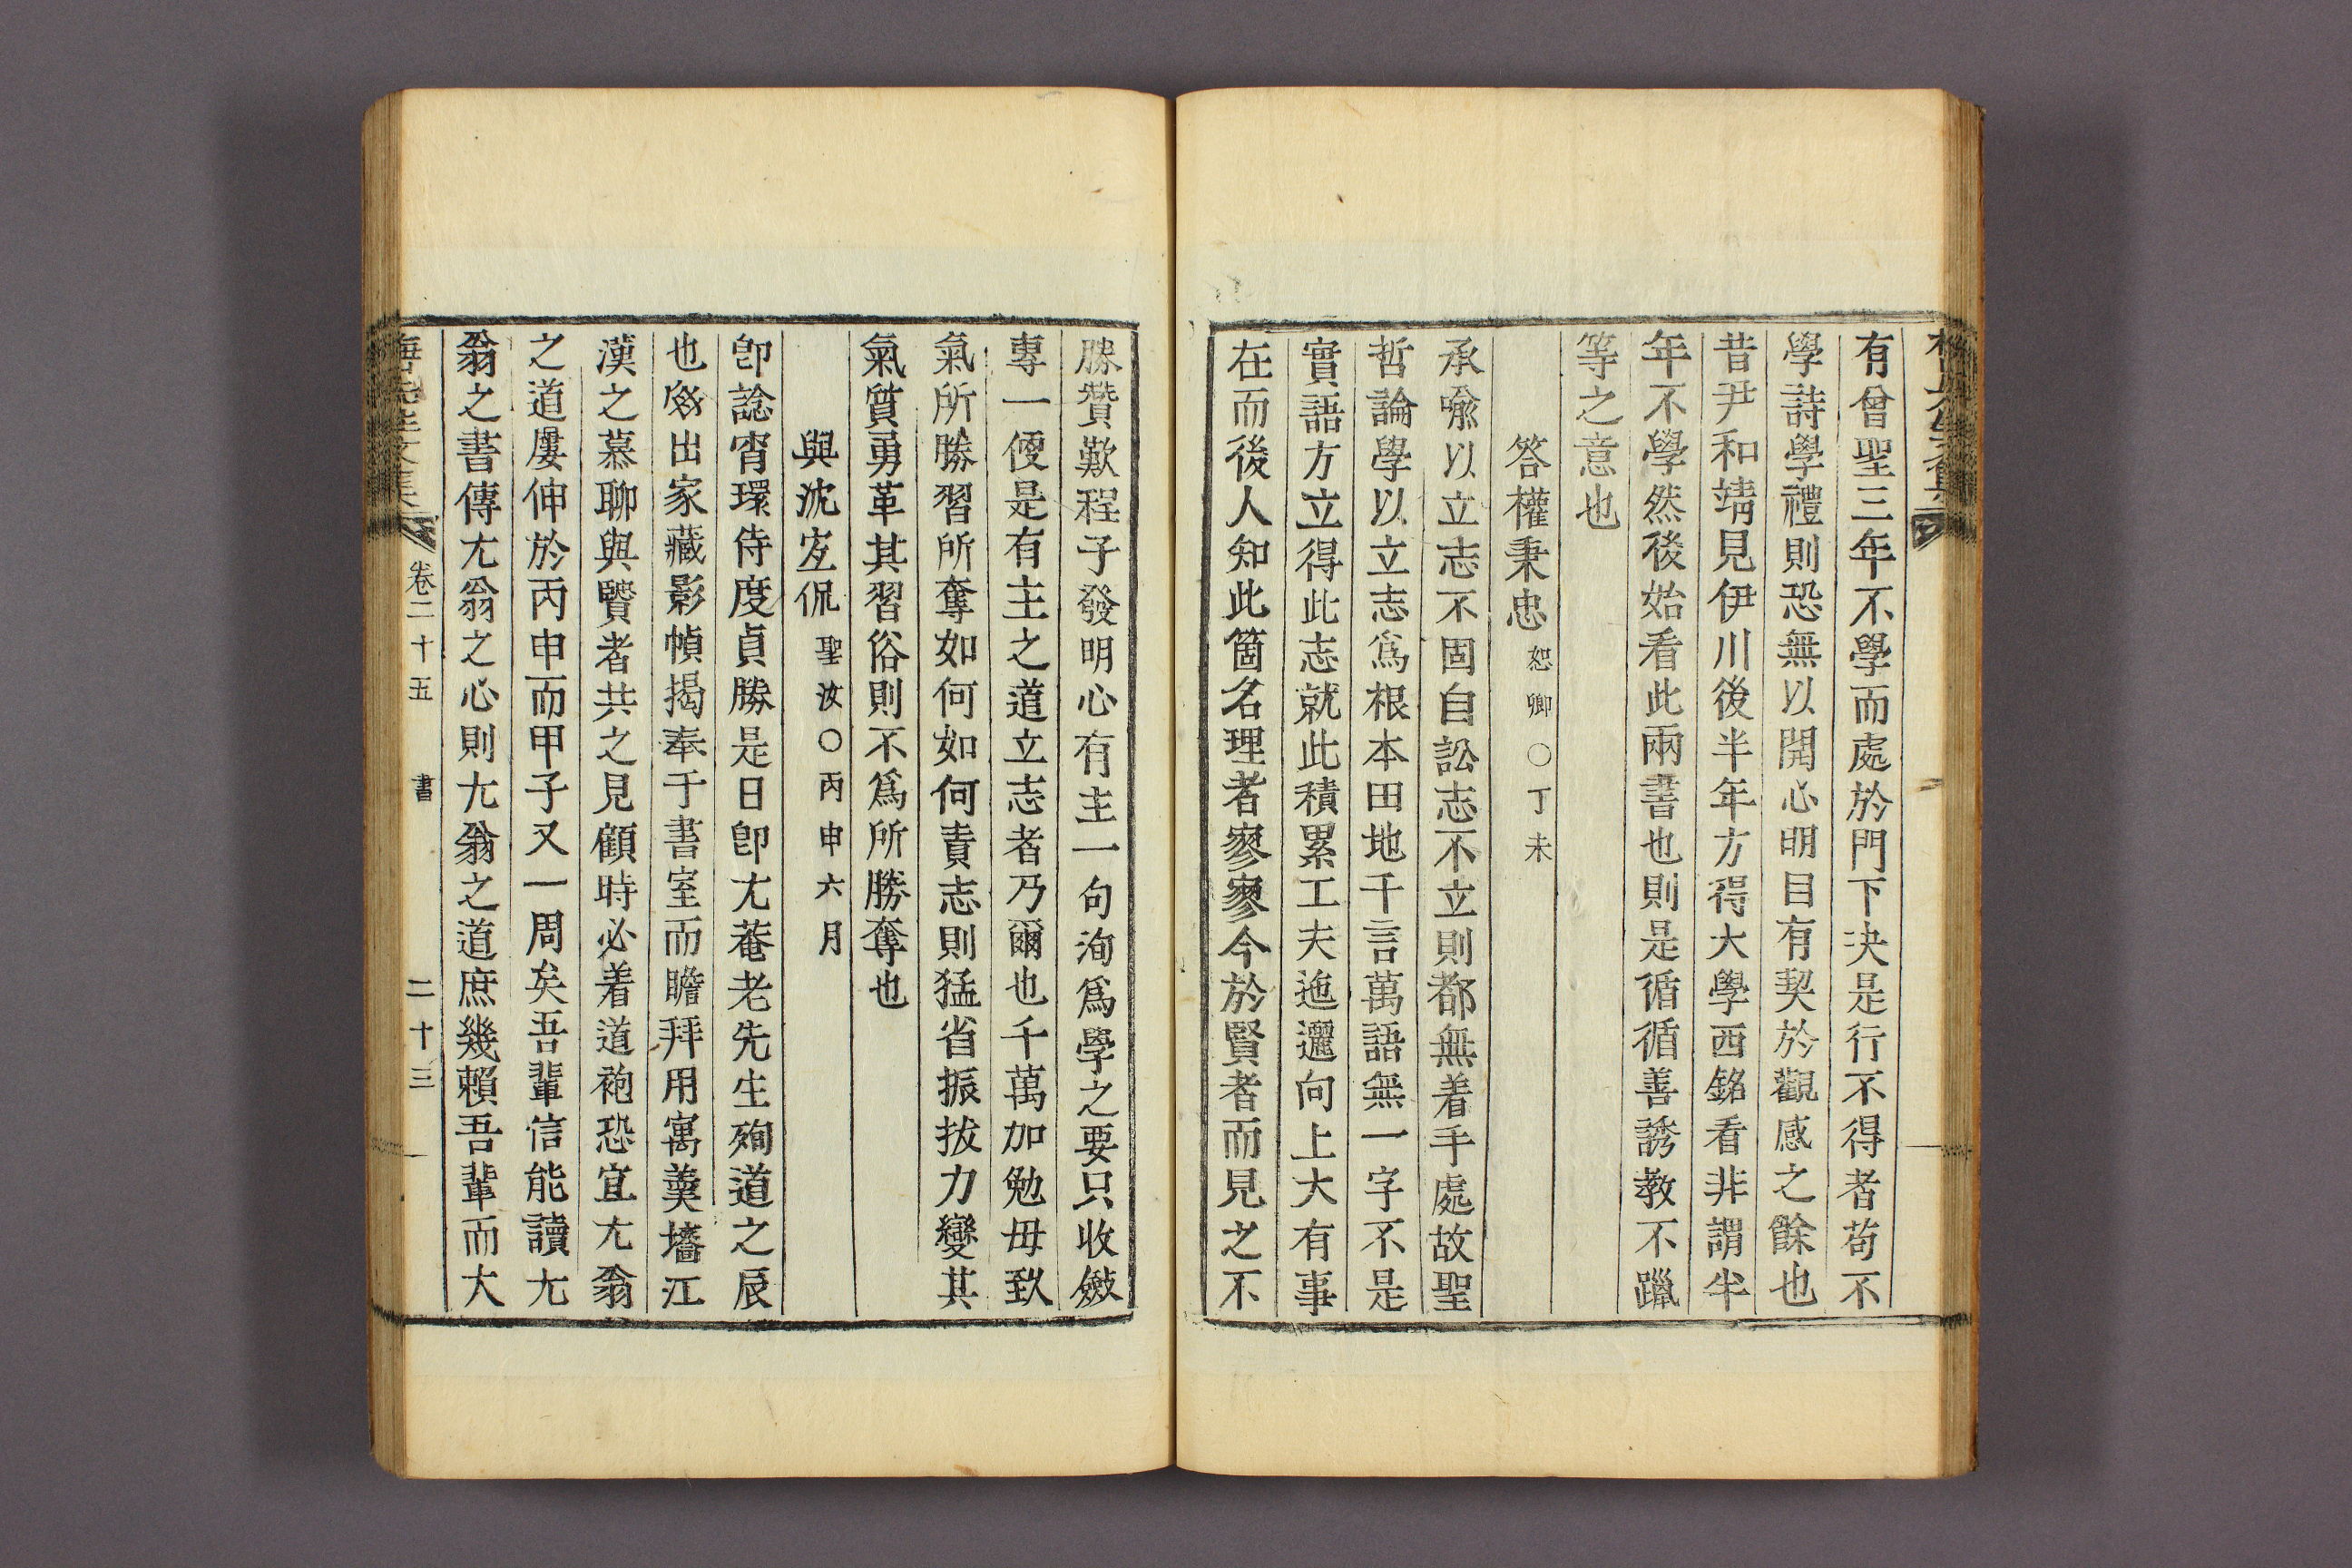 有曾聖三年不學而處於門下決是行不得者苟不
學詩學禮則恐無以開心明目有契於觀感之餘也
昔尹和靖見伊川後半年方得大學西銘看非謂半
年不學然後始看此兩書也則是循循善誘教不躐
等之意也
答權秉忠 恕卿○丁未
承喩以立志不固自訟志不立則都無着手處故聖
哲論學以立志爲根本田地千言萬語無一字不是
實語方立得此志就此積累工夫迤邐向上大有事
在而後人知此箇名理者寥寥今於賢者而見之不
勝贊歎程子發明心有主一句洵爲學之要只收斂
專一便是有主之道立志者乃爾也千萬加勉毋致
氣所勝習所奪如何如何責志則猛省振拔力變其
氣質勇革其習俗則不爲所勝奪也
與沈宜侃 聖汝○丙申六月
卽諗宵環侍度貞勝是日卽尤菴老先生殉道之辰
也敬出家藏影幀揭奉于書室而瞻拜用寓羹墻江
漢之慕聊與賢者共之見顧時必着道袍恐宜尤翁
之道屢伸於丙申而甲子又一周矣吾輩信能讀尤
翁之書傳尤翁之心則尤翁之道庶幾賴吾輩而大
卷二十五 書 二十三